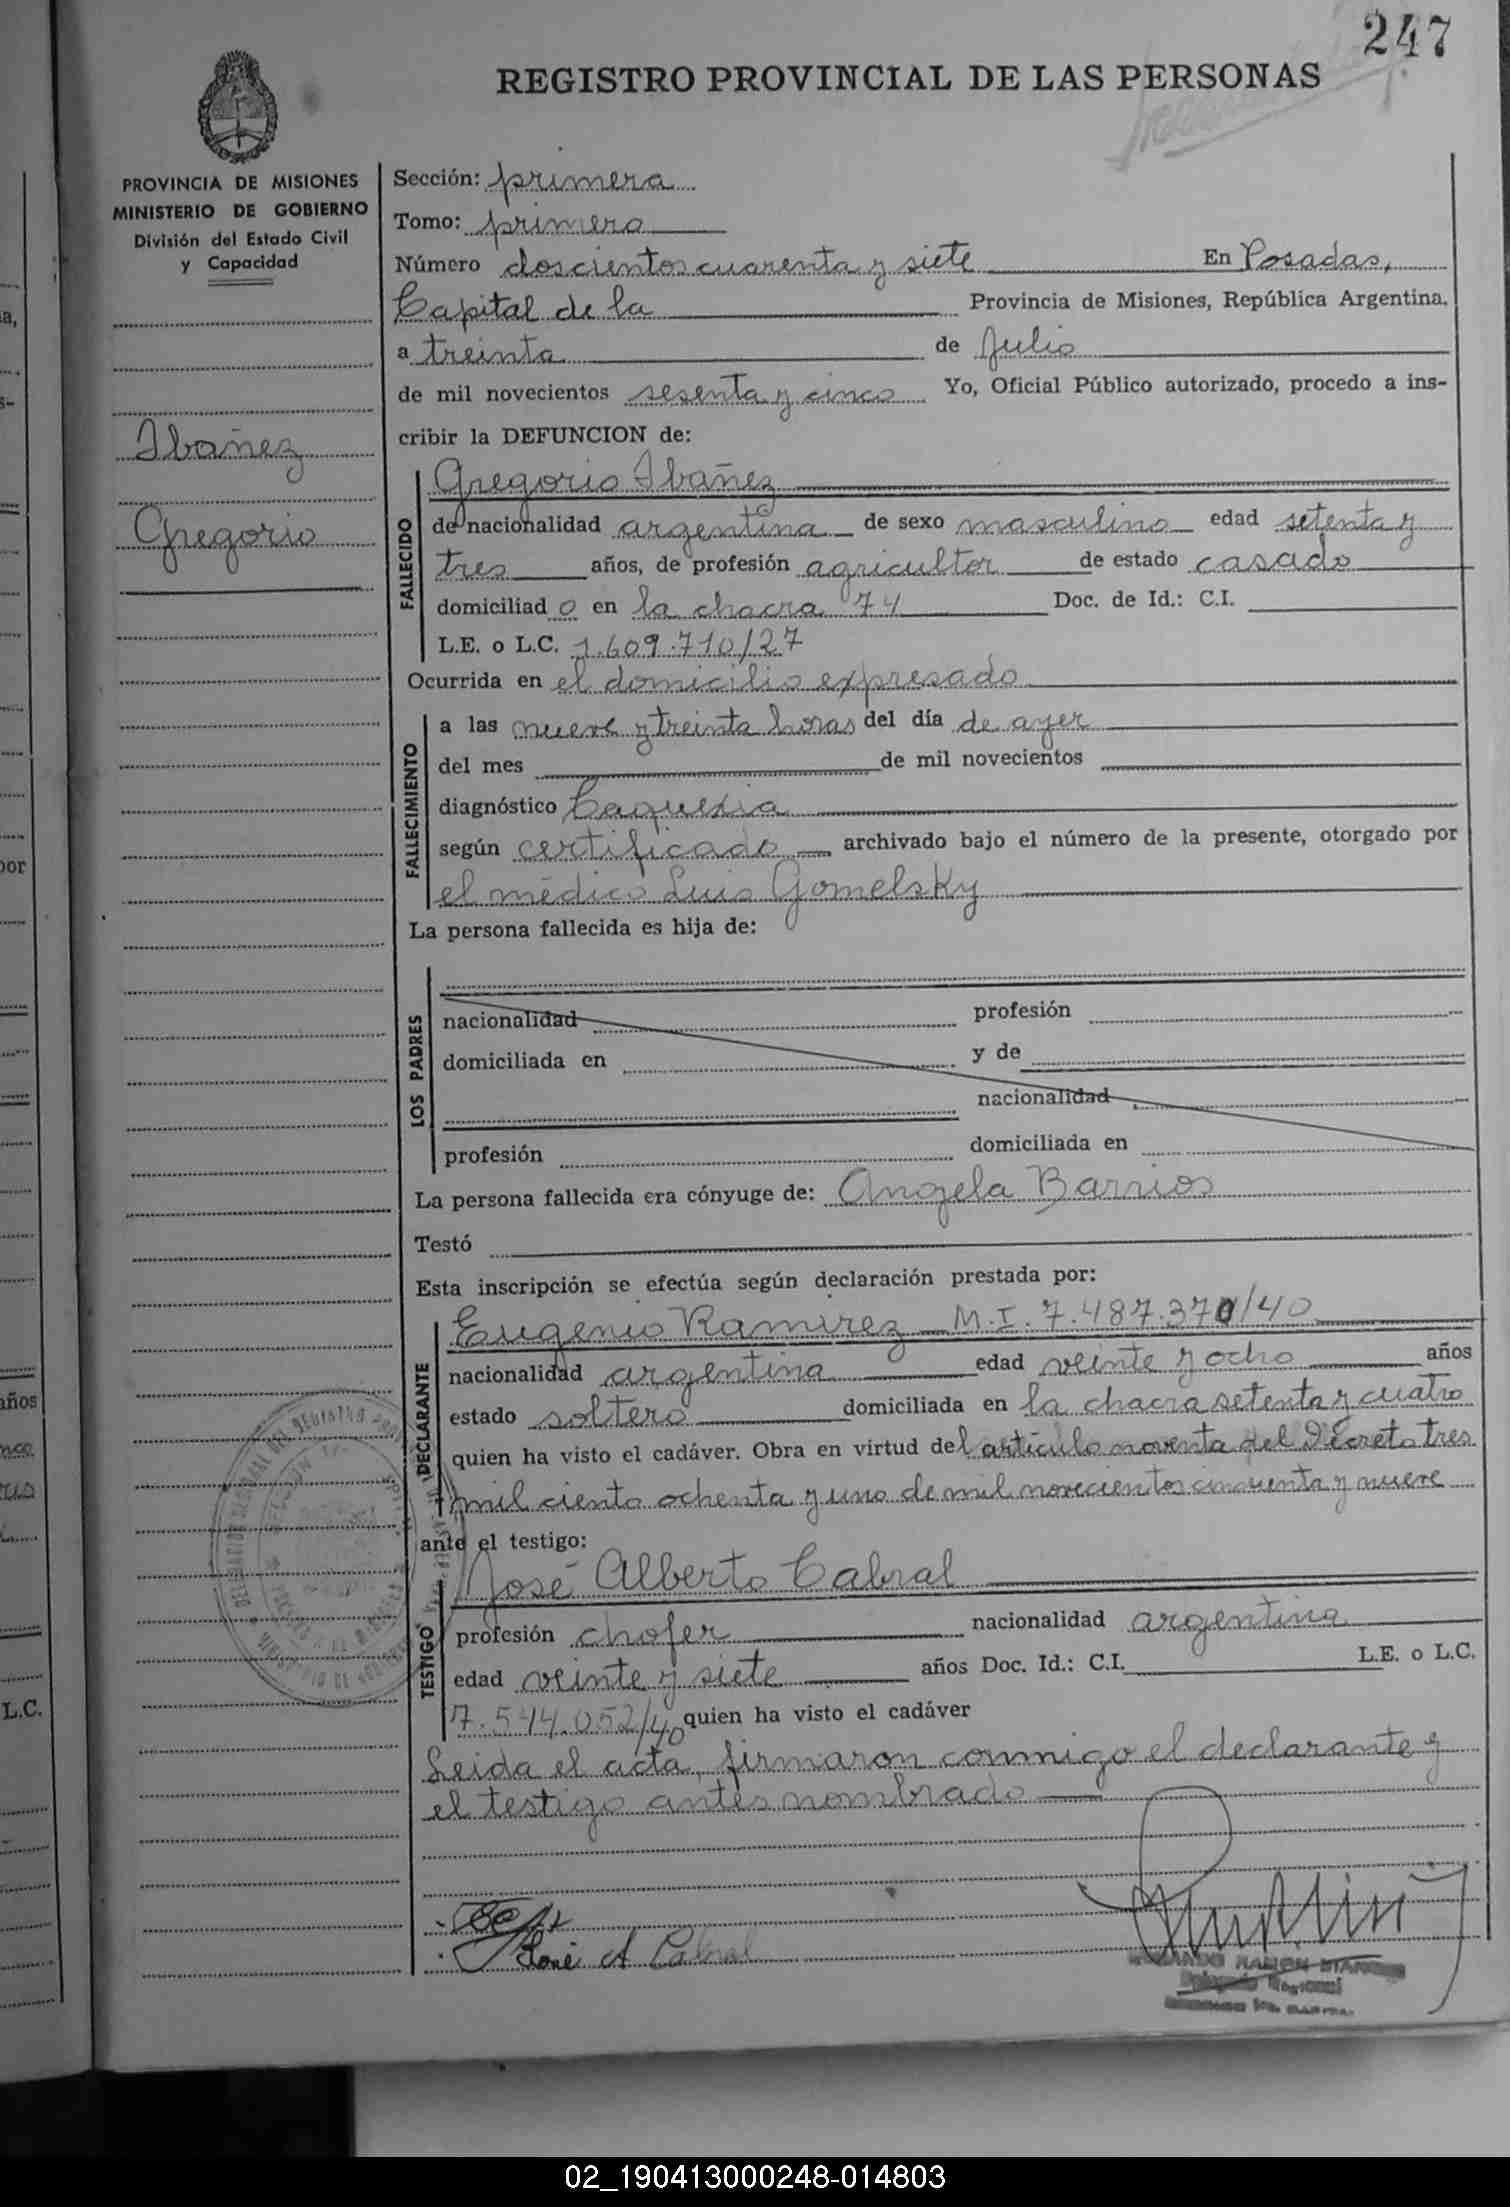 247
REGISTRO PROVINCIAL DE LAS PERSONAS
PROVINCIA DE MISIONES
MINISTERIO DE GOBIERNO
División del Estado Civil
y Capacidad
Ibañez
Gregorio
Sección: primera
Tomo: primero
Número doscientos cuarenta y siete En Posadas,
Capital de la Provincia de Misiones, República Argentina,
a treinta de Julio
de mil novecientos sesenta y cinco Yo, Oficial Público autorizado, procedo a ins-
cribir la DEFUNCION de:
FALLECIDO
Gregorio Ibañez
de nacionalidad argentina de sexo masculino edad setenta y
tres años, de profesión agricultor de estado casado
domiciliado en la chacra 74 Doc. de Id.: C.I.
L.E. o L.C. 1.609.710/27
Ocurrida en el domicilio expresado
FALLECIMIENTO
a las nueve y treinta horas del día de ayer
del mes de mil novecientos
diagnóstico Caquexia
según certificado archivado bajo el número de la presente, otorgado por
el médico Luis Gomelsky
La persona fallecida es hija de:
LOS PADRES
nacionalidad profesión
domiciliada en y de
nacionalidad
profesión domiciliada en
La persona fallecida era cónyuge de: Angela Barrios
Testó
Esta inscripción se efectúa según declaración prestada por:
DECLARANTE
Eugenio Ramirez M.I. 7.487.370/40
nacionalidad argentina edad veinte y ocho años
estado soltero domiciliada en la chacra setenta y cuatro
quien ha visto el cadáver. Obra en virtud del artículo noventa del Decreto tres
mil ciento ochenta y uno de mil novecientos cincuenta y nueve
ante el testigo:
TESTIGO
José Alberto Cabral
profesión chofer nacionalidad argentina
edad veinte y siete años Doc. Id.: C.I. L.E. o L.C.
7.544.052/40 quien ha visto el cadáver
Leida el acta, firmaron conmigo el declarante y
el testigo antes nombrado
José A Cabral
RAMON
Delegado Regional
02_190413000248-014803